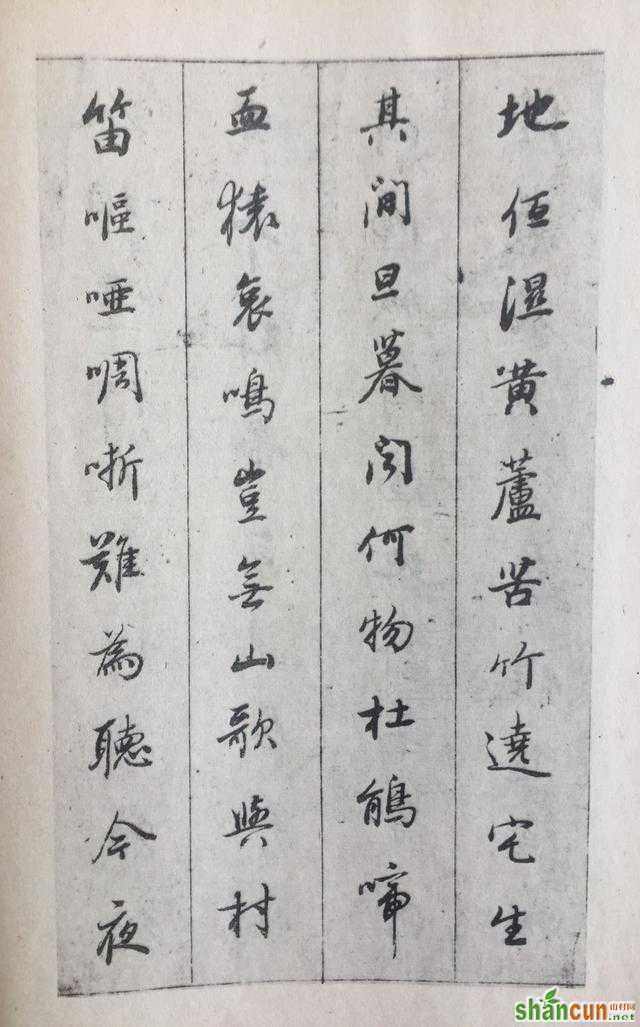 地低湿黄蘆苦竹遶宅生
其間旦暮聞何物杜鵑啼
血猿哀鳴豈無山歌與村
笛嘔啞啁哳難為聽今夜
shancun
山村网
.net